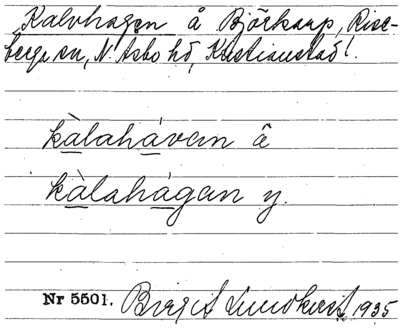 Kalvhagen å Björkarp, Rise-
berga sn, N. Åsbo hd, Kristianstad l.
kàlahávan ä
kàlahágan y.
Nr 5501. Birgit Lundkvist 1935